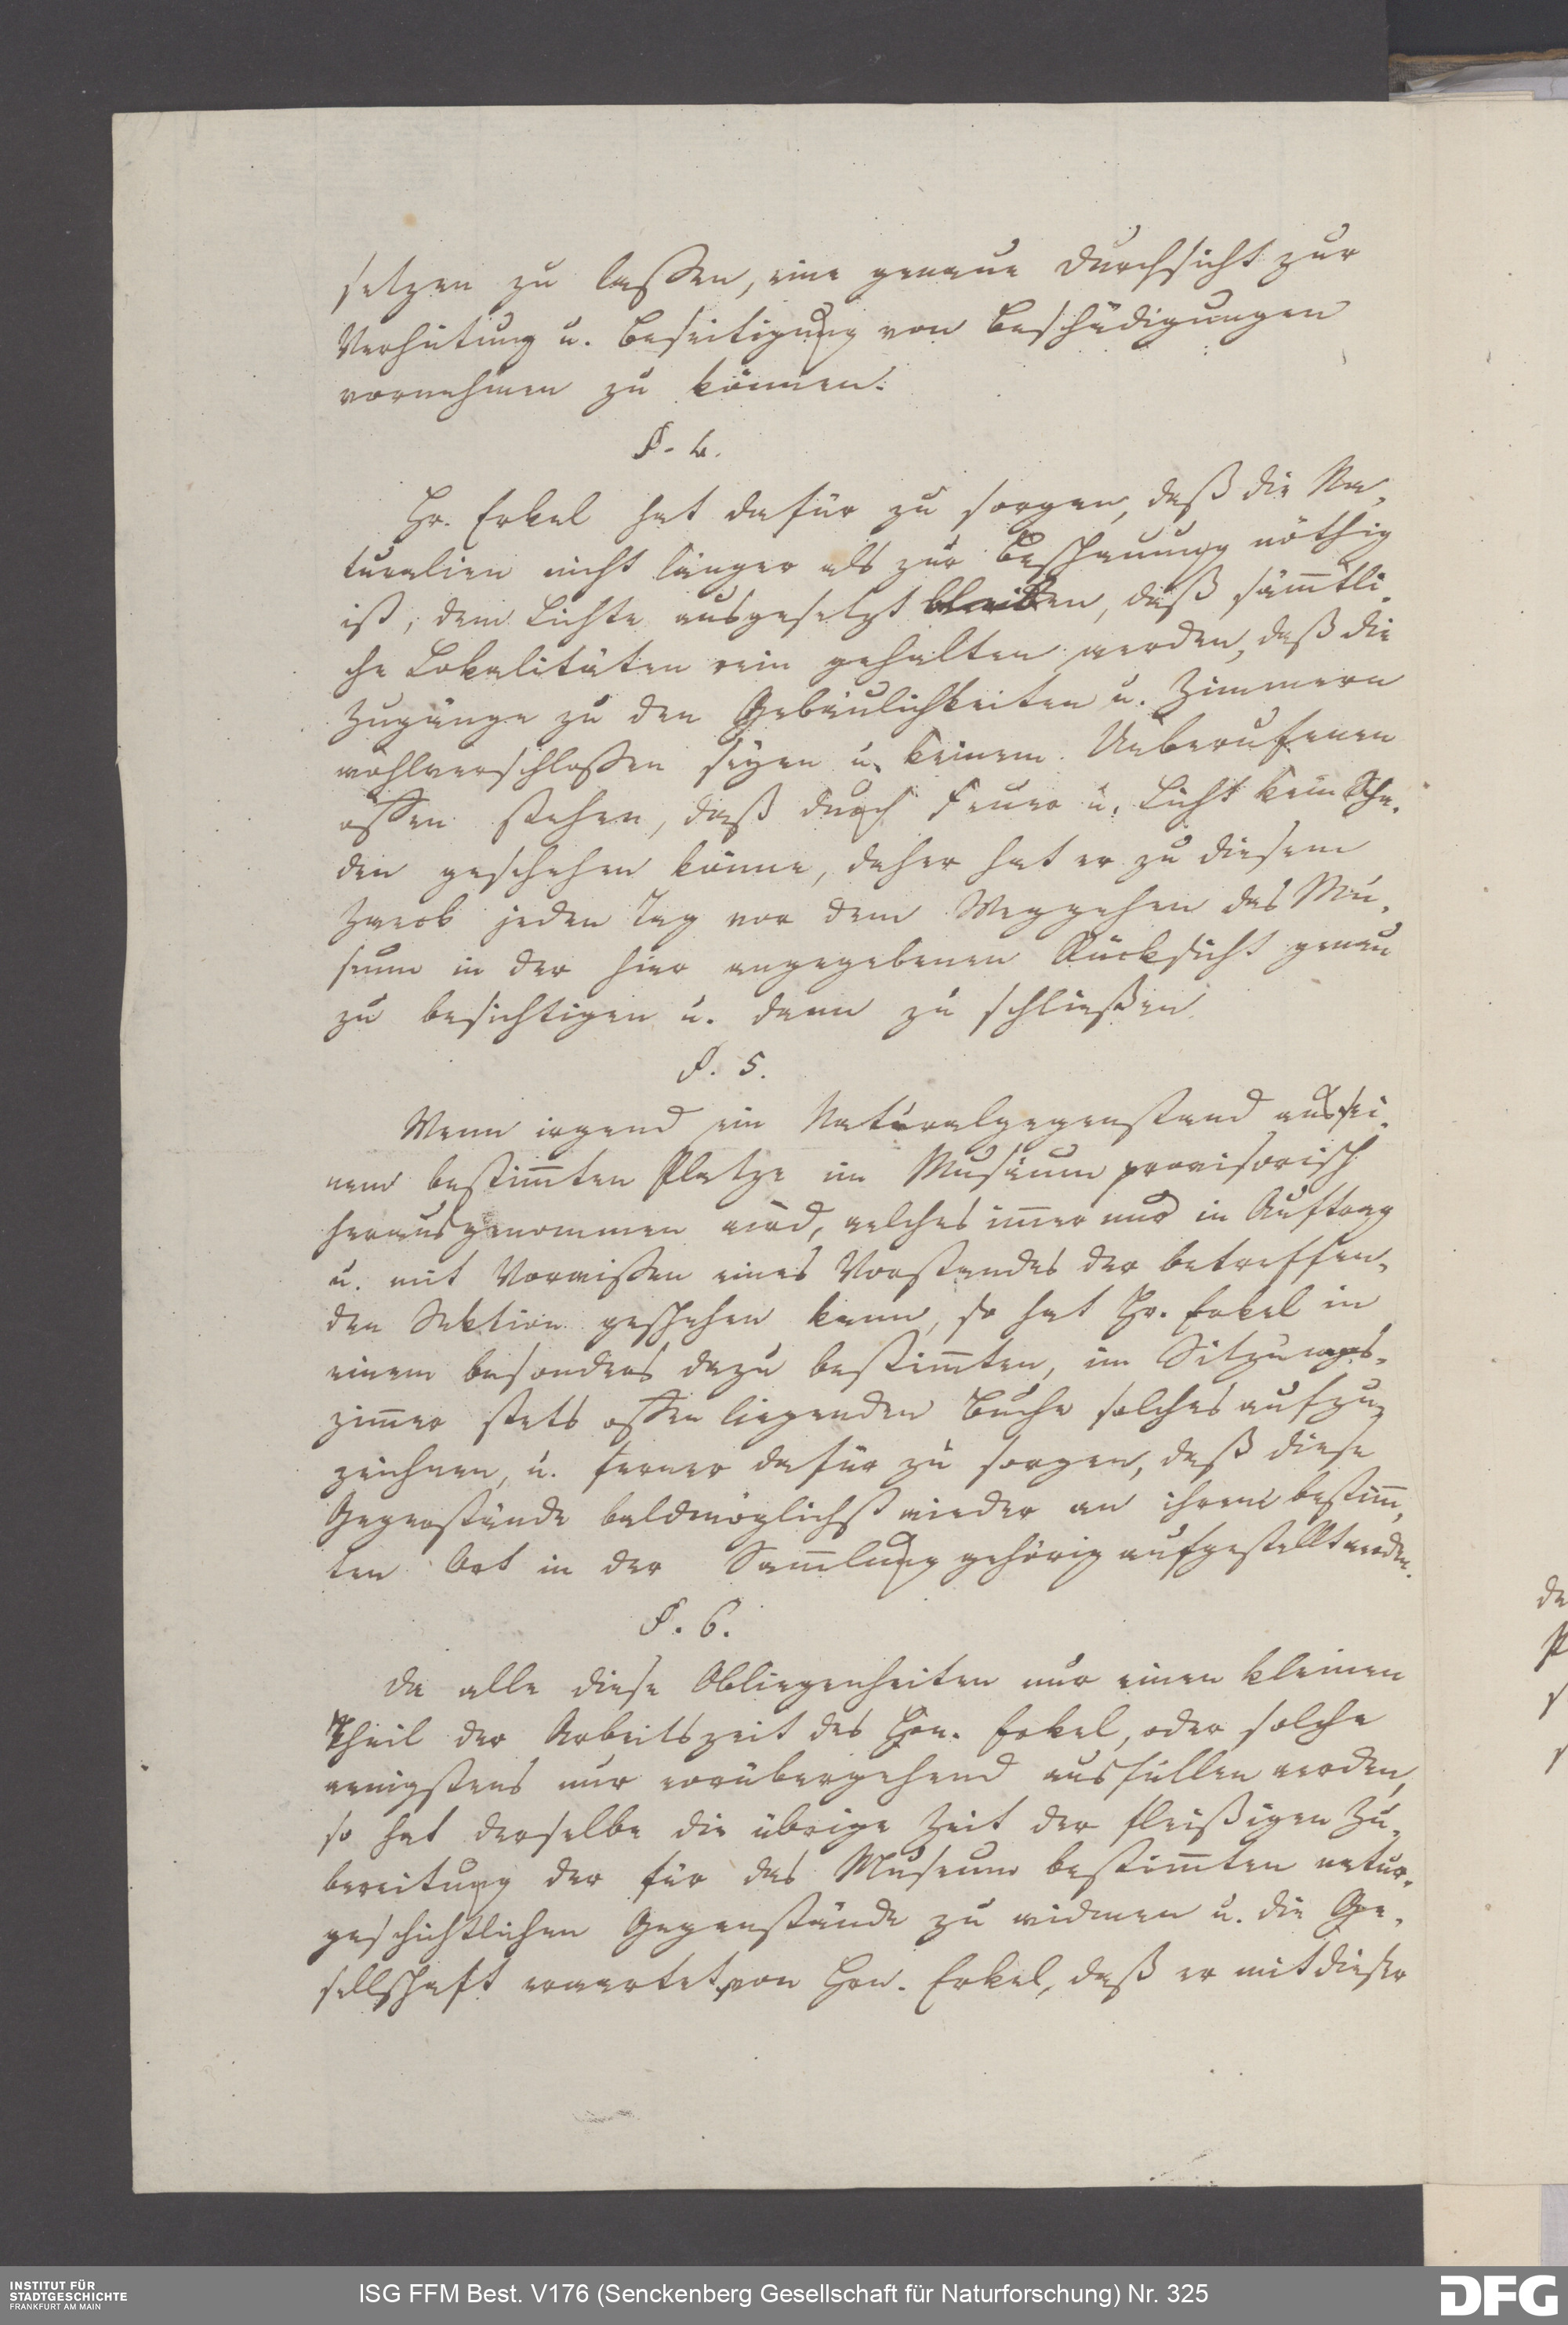 setzen zu laßen, eine genaue Durchsicht zur
Verhütung u. Beseitigung von Beschädigungen
vornehmen zu können.
§. 4.
Hr. Erkel hat dafür zu sorgen, daß die Na-
turalien nicht länger als zur Beschauung nöthig
ist, dem Lichte ausgesetzt bleiben, daß sämmtli-
che Lokalitäten rein gehalten werden, daß die
Zugänge zu den Gebäulichkeiten u. Zimmern
wohlverschloßen seyen u. keinem Unberufenen
offen stehen, daß durch Feuer u. Licht kein Scha-
den geschehen könne, daher hat er zu diesem
Zweck jeden Tag vor dem Weggehen das Mu-
seum in der hier angegebenen Rücksicht genau
zu besichtigen u. dann zu schließen.
§. 5.
Wenn irgend ein Naturalgegenstand aus sei-
nem bestimmten Platze im Museum provisorisch
herausgenommen wird, welches immer nur in Auftrag
u. mit Vorwißen eines Vorstandes der betreffen-
den Sektion geschehen kann, so hat Hr. Erkel in
einem besonders dazu bestimmten, im Sitzungs-
zimmer stets offen liegenden Buche solches aufzu-
zeichnen, u. ferner dafür zu sorgen, daß diese
Gegenstände baldmöglichst wieder an ihrem bestimm-
ten Ort in der Sammlung gehörig aufgestellt werden.
§. 6.
Da alle diese Obliegenheiten nur einen kleinen
Theil der Arbeitszeit des Hrn. Erkel, oder solche
wenigstens nur vorübergehend ausfüllen werden,
so hat derselbe die übrige Zeit der fleißigen Zu-
bereitung der für das Museum bestimmten natur-
geschichtlichen Gegenstände zu widmen u. die Ge-
sellschaft erwartet von Hrn. Erkel, daß er mit dieser
INSTITUT FÜR
STADTGESCHICHTE
FRANKFURT AM MAIN
ISG FFM Best. V176 (Senckenberg Gesellschaft für Naturforschung) Nr. 325
DFG